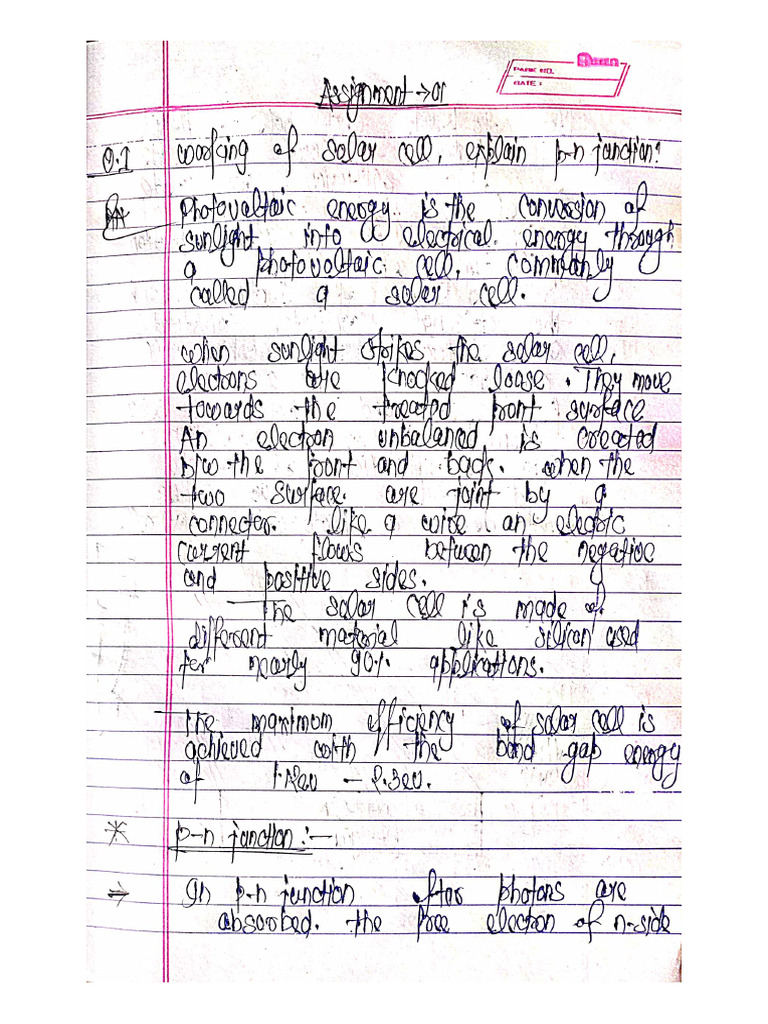 Queen
PAGE NO.
DATE :
Assignment → 01
Q.1 working of solar cell, explain p-n junction?
Photovoltaic energy is the conversion of
sunlight into electrical energy through
a photovoltaic cell, commanly
called a solar cell.
when sunlight strikes the solar cell,
electrons are knocked loose. They move
towards the treated front surface
An electron unbalanced is created
b/w the front and back. when the
two surface are joint by a
connecter. like a wire an electric
current flows between the negative
and positive sides.
The solar cell is made of
different material like silicon used
for nearly 90% applications.
The maximum efficiency of solar cell is
achieved with the band gap energy
of
* p-n junction :-
⇒ In p-n junction after photons are
absorbed. the free electron of n-side